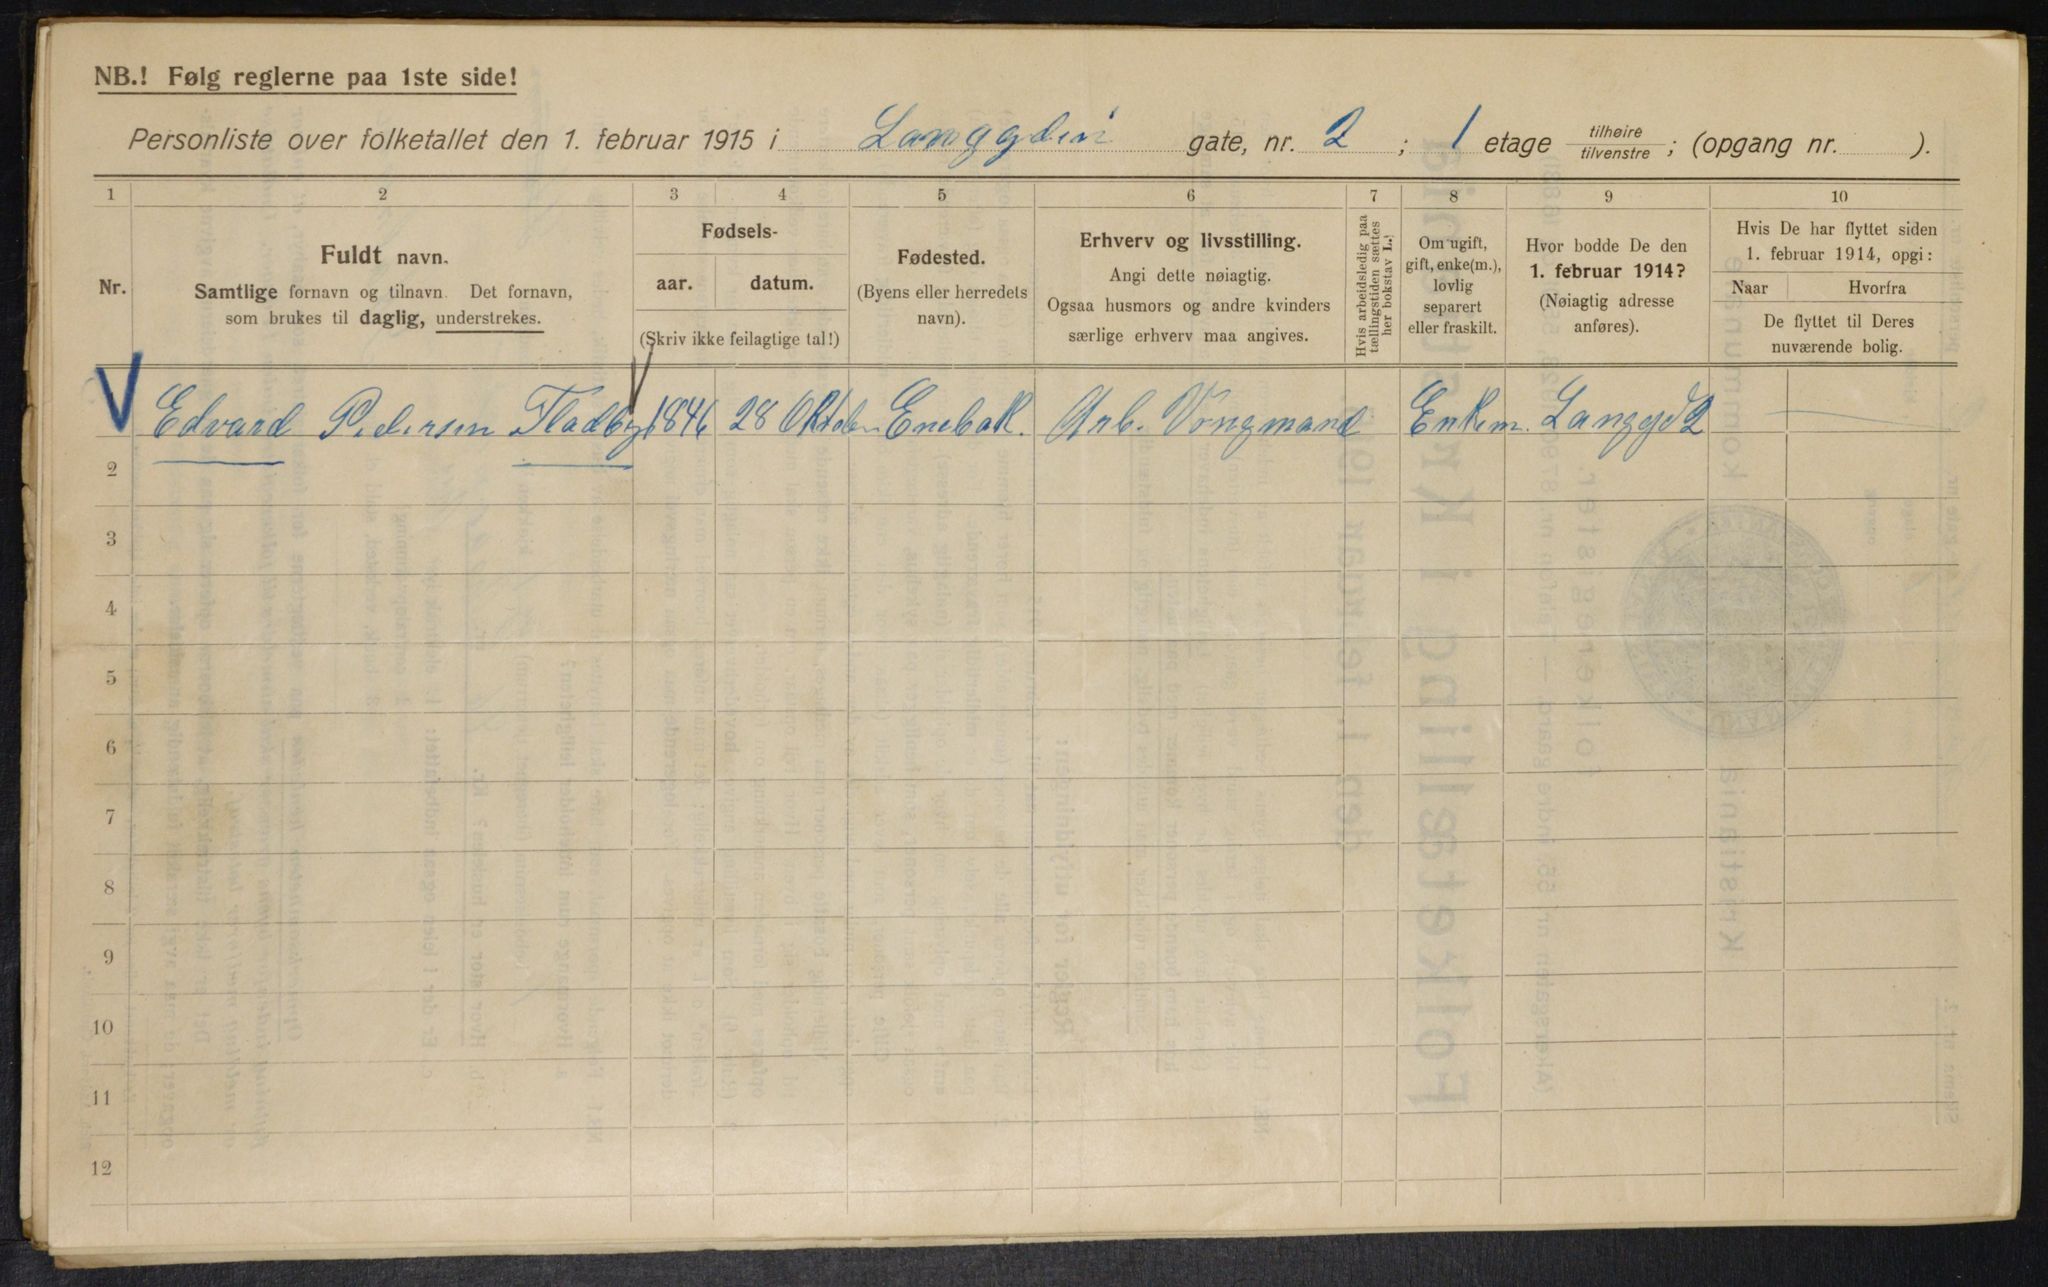 NB.! Følg reglerne paa 1ste side!
Personliste over folketallet den 1. februar 1915 i Langgden gate, nr. 2 ; 1 etage tilhøire tilvenstre ; (opgang nr. ).
1 2 3 4 5 6 7 8 9 10
Nr.
Fuldt navn.
Samtlige fornavn og tilnavn. Det fornavn,
som brukes til daglig, understrekes.
Fødsels-
aar. datum.
(Skriv ikke feilagtige tal!)
Fødested.
(Byens eller herredets
navn).
Erhverv og livsstilling.
Angi dette nøiagtig.
Ogsaa husmors og andre kvinders
særlige erhverv maa angives.
Hvis arbeidsledig paa
tællingstiden sættes
her bokstav L.!
Om ugift,
gift, enke(m.),
lovlig
separert
eller fraskilt.
Hvor bodde De den
1. februar 1914?
(Nøiagtig adresse
anføres).
Hvis De har flyttet siden
1. februar 1914, opgi:
Naar Hvorfra
De flyttet til Deres
nuværende bolig.
V Edvard Pedersen Fladby 1846 28 Oktober Enebak. Arb. Vongmand Enkem. Langgd 2 —
2
3
4
5
6
7
8
9
10
11
12